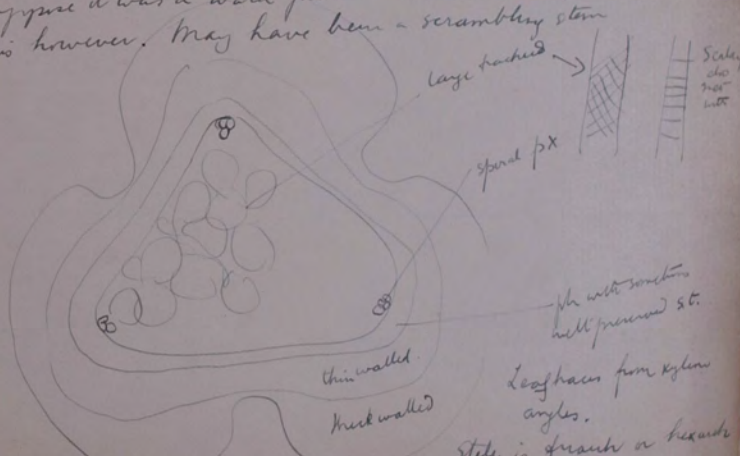 suppose it was a
is however. May have been a scrambling stem
large tracheid
Scal
also
not
with
spiral px
ph with sometimes
well preserved s.t.
thin walled.
thick walled
Leaf traces from xylem
angles.
Stele is triarch or hexarch